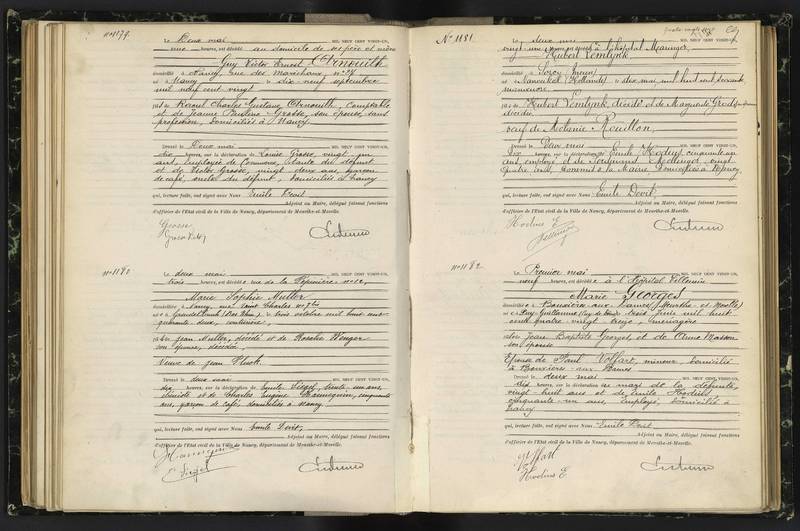 No 1179.
Le Deux mai MIL NEUF CENT VINGT-UN,
une heures, est décédé au domicile de ses père et mère
Guy Victor Ernest Arnoult
domicilié à Nancy, rue des Maréchaux, no
né à Nancy le dix-neuf septembre
mil neuf cent vingt
fils de Raoul Charles Gustave Arnoult, comptable
et de Jeanne Pauline Grosse, son épouse, sans
profession, domiciliés à Nancy
Dressé le Deux mai MIL NEUF CENT VINGT-UN,
dix heures, sur la déclaration de Louise Grosse, vingt un
ans, employée de Commerce, tante du défunt
et de Victor Grosse, vingt-deux ans, garçon
de café, oncle du défunt, domiciliés à Nancy
qui, lecture faite, ont signé avec Nous Emile Devit
Adjoint au Maire, délégué faisant fonctions
d'officier de l'Etat civil de la Ville de Nancy, département de Meurthe-et-Moselle.
Grosse
Grosse Victor
No 1180
Le deux mai MIL NEUF CENT VINGT-UN,
trois heures, est décédée rue de la Pépinière
Marie Sophie Muller
domiciliée à Nancy, rue Saint Charles
née à Grendelbruch (Bas Rhin) le trois octobre mil huit cent
quarante deux, couturière,
fille de Jean Muller, décédé et de Rosalie Wenger
son épouse, décédée,
Veuve de Jean
Dressé le deux mai MIL NEUF CENT VINGT-UN,
dix heures, sur la déclaration de Emile Siegel, trente-un ans,
et de Charles Eugène cinquante
ans, garçon de café, domiciliés à Nancy
qui, lecture faite, ont signé avec Nous Emile Devit,
Adjoint au Maire, délégué faisant fonctions
d'officier de l'Etat civil de la Ville de Nancy, département de Meurthe-et-Moselle.
Siegel
No 1181.
Le deux mai MIL NEUF CENT VINGT-UN,
à l'hôpital
Hubert Vemlynk
domicilié à Sorcy (Meuse)
né à (Hollande) le dix mai, mil huit cent soixante
fils de Hubert Vemlynk, décédé et de Marguerite
décédée
veuf de Mélanie Rouillon,
Dressé le Deux mai MIL NEUF CENT VINGT-UN,
Dix heures, sur la déclaration de Emile Hodius, cinquante un
ans, employé et de vingt
quatre ans, commis à la Mairie, domiciliés à Nancy
qui, lecture faite, ont signé avec Nous Emile Devit,
Adjoint au Maire, délégué faisant fonctions
d'officier de l'Etat civil de la Ville de Nancy, département de Meurthe-et-Moselle.
Hodius E
No 1182
Le Premier mai MIL NEUF CENT VINGT-UN,
neuf heures, est décédée à l'hôpital Villemin
Marie Georges
domiciliée à Bouxières aux Dames (Meurthe-et-Moselle)
née à Puy-Guillaume (Puy de Dôme) le trois juin mil huit
cent quatre-vingt treize, ménagère
fille de Jean Baptiste Georges et de Anne Masson
son épouse
Epouse de Paul Volfart, mineur, domicilié
à Bouxières-aux-Dames
Dressé le deux mai MIL NEUF CENT VINGT-UN,
dix heures, sur la déclaration du mari de la défunte,
vingt huit ans et de Emile Hodius
cinquante-un ans, employé, domicilié à
Nancy
qui, lecture faite, ont signé avec Nous Emile Devit
Adjoint au Maire, délégué faisant fonctions
d'officier de l'Etat civil de la Ville de Nancy, département de Meurthe-et-Moselle.
Hodius E.